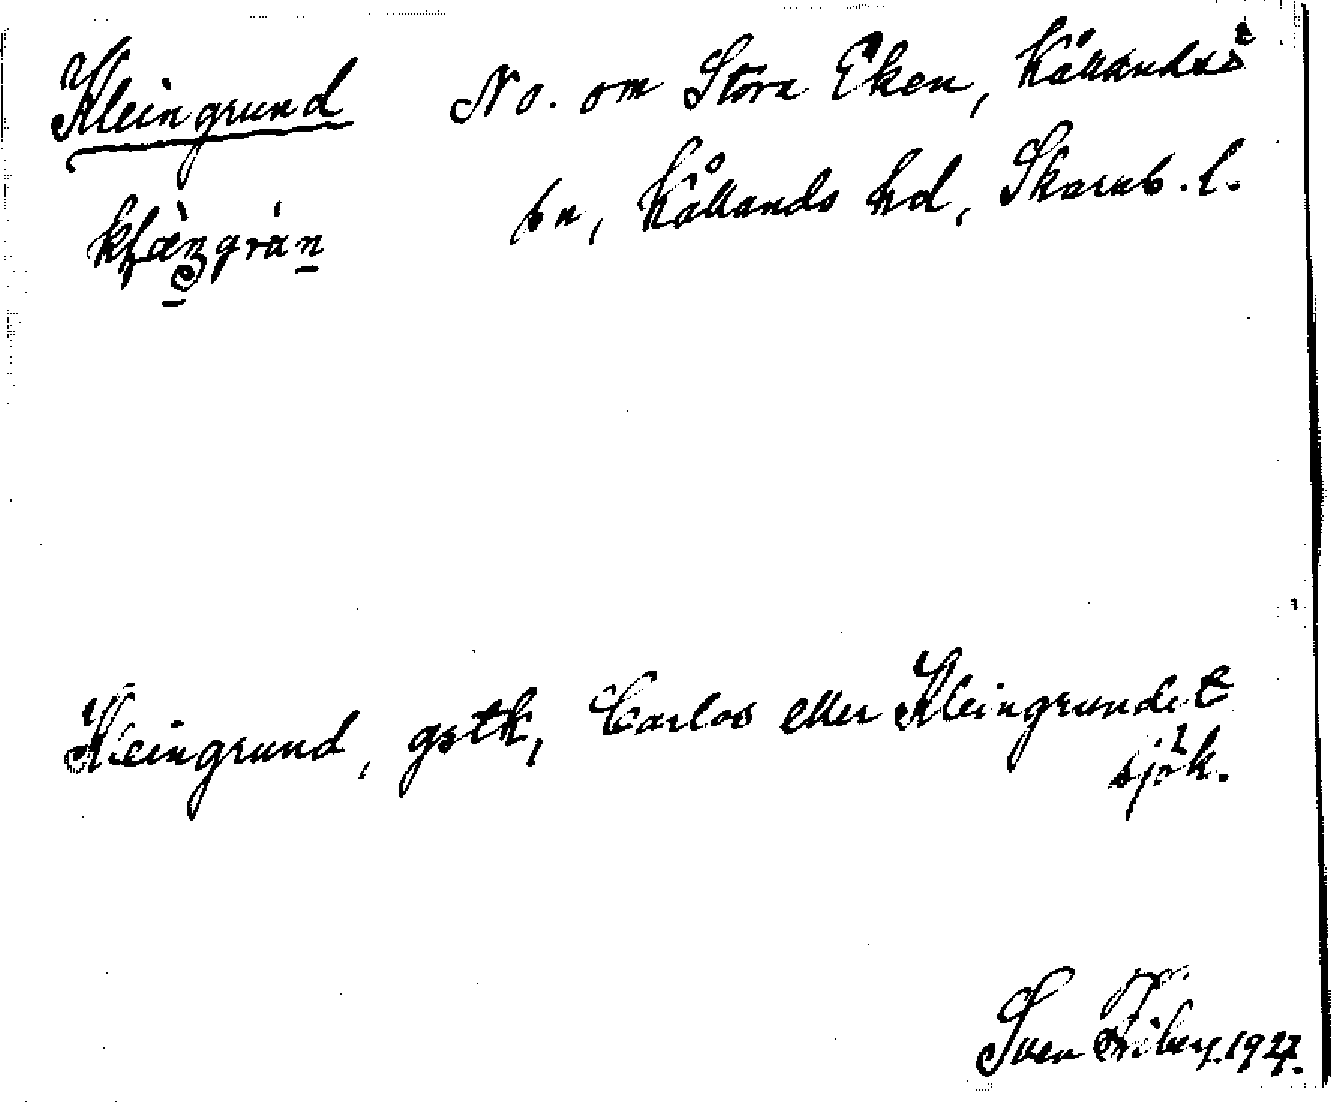 Kleingrund No. om Stora Eken, Kållandsö
sn, Kållands hd, Skarab. l.
Kleingrund, gstk, Carlos eller Kleingrundet
sjök.
Sven Fiberg. 1927.